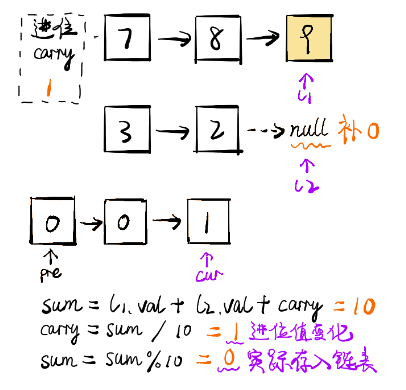 进位
carry
1
7 → 8 → 9
L1
3 → 2 → null 补0
L2
0 → 0 → 1
pre
cur
sum = L1.val + L2.val + carry = 10
carry = sum / 10 = 1 进位值变化
sum = sum % 10 = 0 实际存入链表